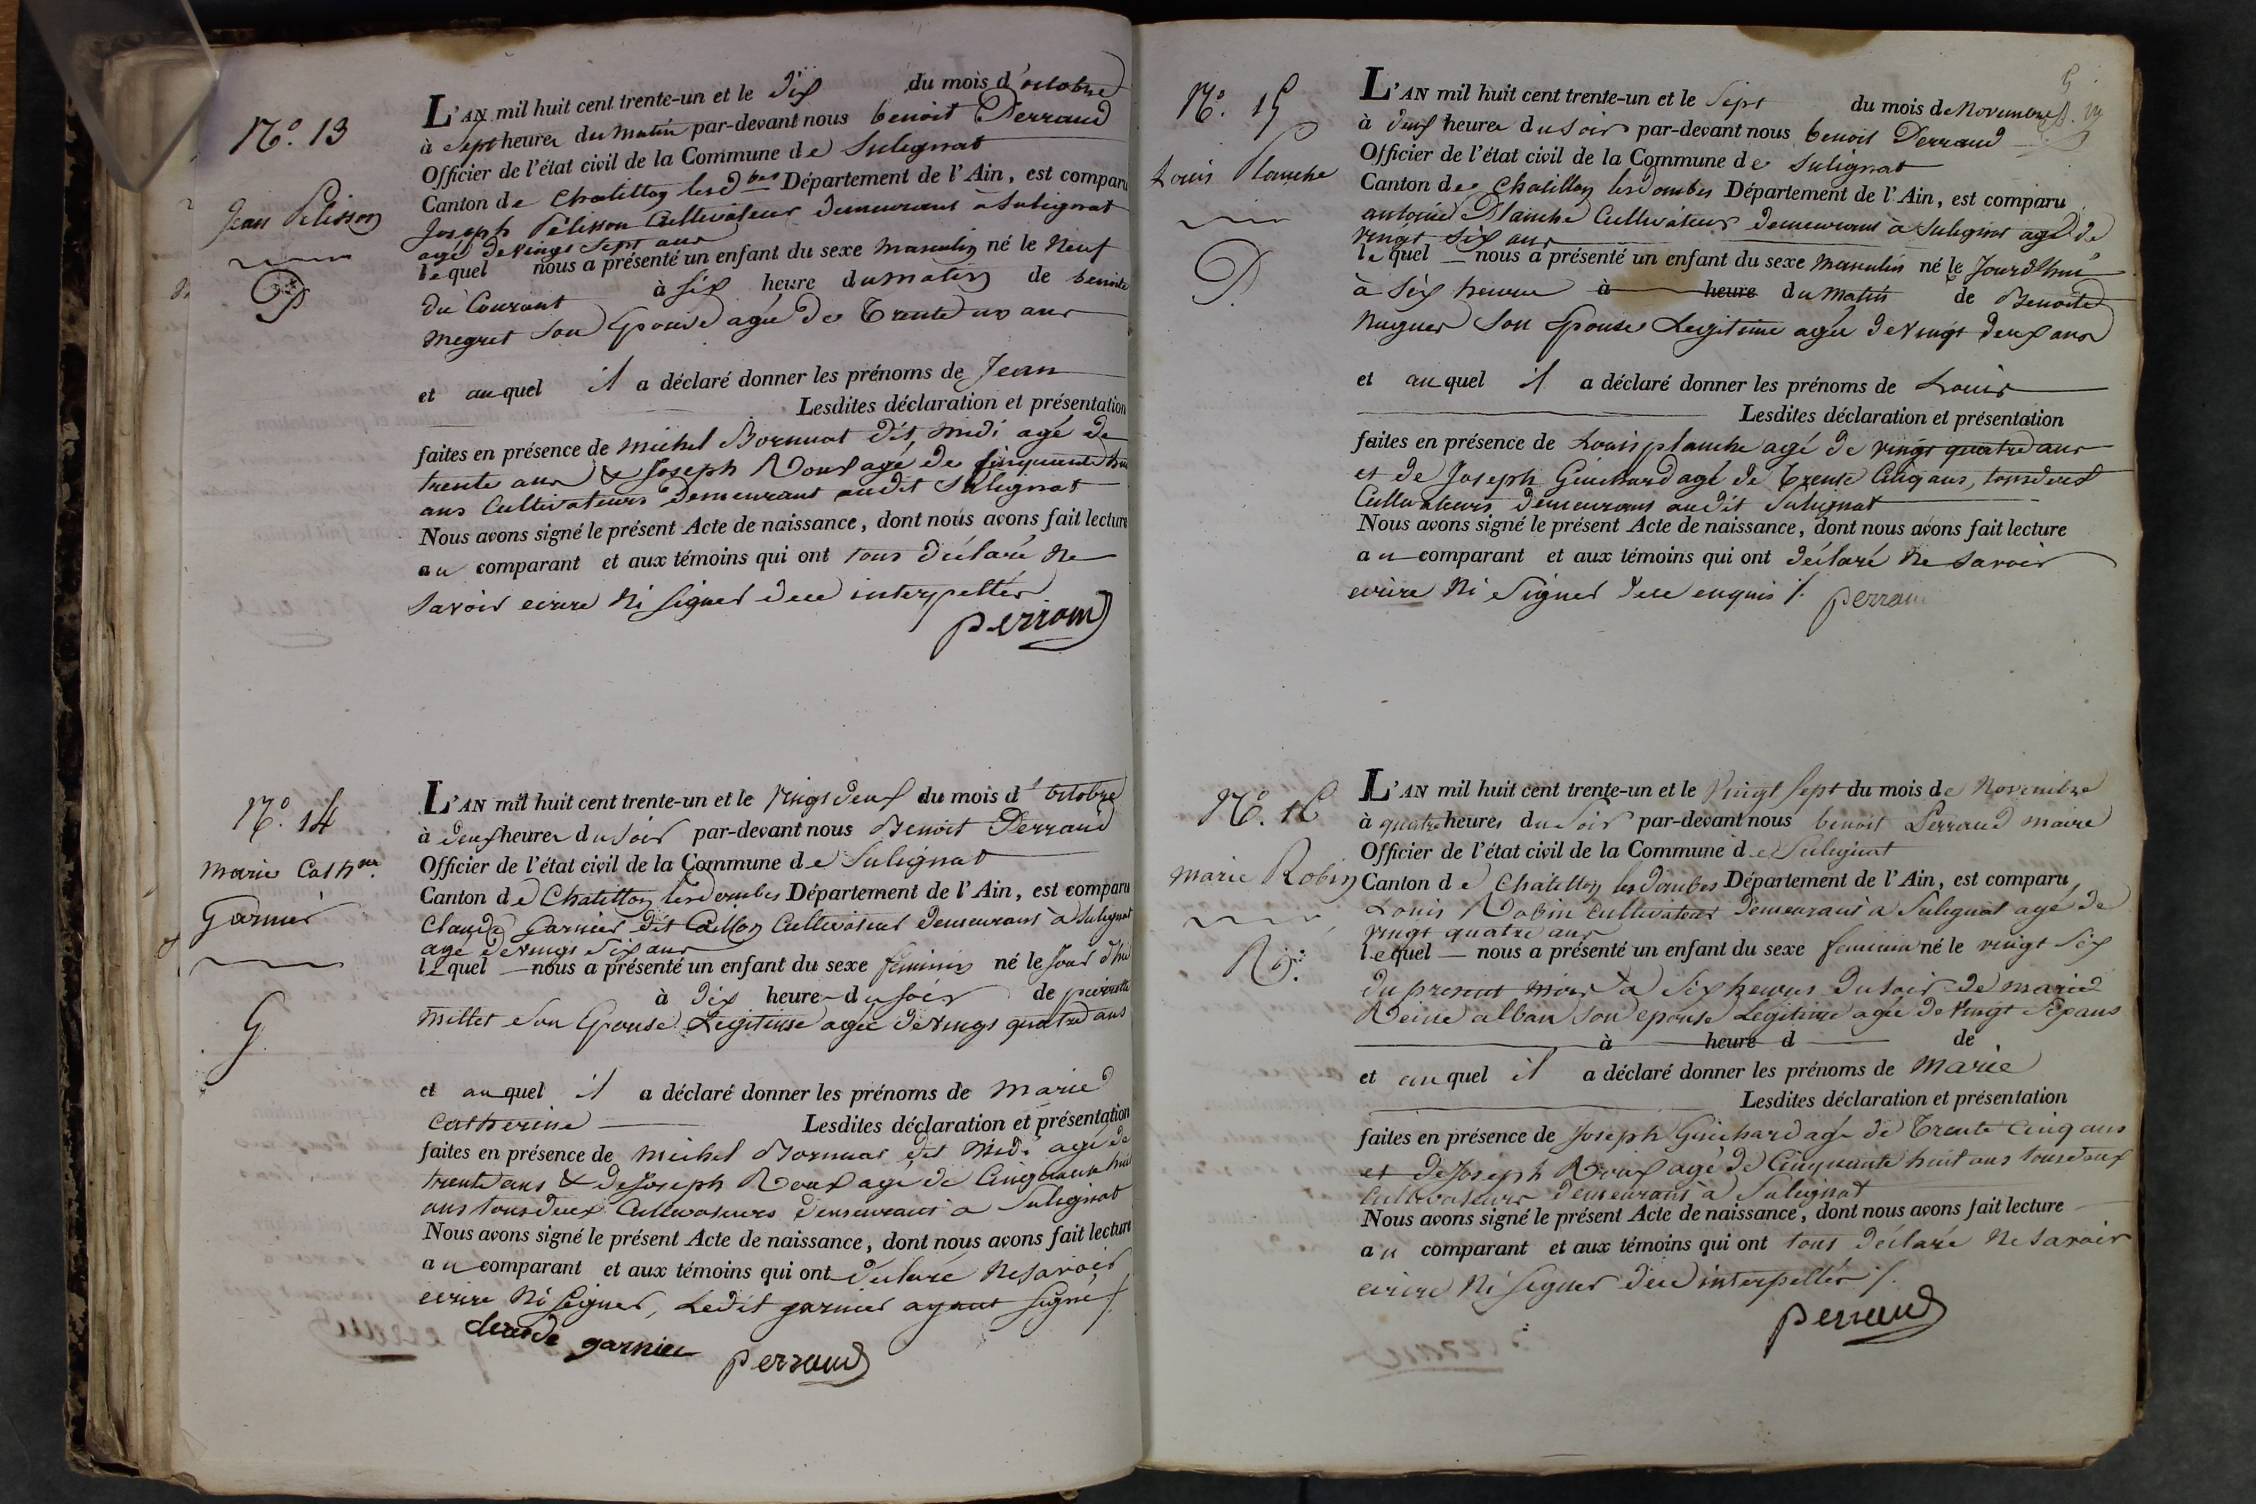 N.º 13
Jean Pelisson
P
L'AN mil huit cent trente-un et le dix du mois d'octobre
à sept heures du matin par-devant nous benoit Perraud
Officier de l'état civil de la Commune de Sulignat
Canton de Chatillon les d bes Département de l'Ain, est comparu
Joseph Pelisson Cultivateur demeurant à Sulignat
agé de vingt sept ans
lequel nous a présenté un enfant du sexe masculin né le neuf
du Courant à six heure du matin de benoite
megret son Epouse agée de Trente un ans
et auquel il a déclaré donner les prénoms de Jean
Lesdites déclaration et présentation
faites en présence de michel Bornuat dit, midi agé de
trente ans & Joseph Roux agé de cinquante huit
ans Cultivateurs demeurant audit Sulignat
Nous avons signé le présent Acte de naissance, dont nous avons fait lecture
au comparant et aux témoins qui ont tous déclaré ne
savoir ecrire ni signer de ce interpellés
perraud
N.º 14
marie Cath ne
Garnier
G
L'AN mil huit cent trente-un et le vingt deux du mois d'octobre
à deux heures du soir par-devant nous Benoit Perraud
Officier de l'état civil de la Commune de Sulignat
Canton de Chatillon les dombes Département de l'Ain, est comparu
Claude Garnier dit Caillon Cultivateur demeurant à Sulignat
agé de vingt six ans
lequel nous a présenté un enfant du sexe feminin né le Jour d'hui
à dix heure du soir de pierrette
millet son Epouse Legitime agée de vingt quatre ans
et auquel il a déclaré donner les prénoms de marie
catherine Lesdites déclaration et présentation
faites en présence de michel Bornuat dit Midi agé de
trente ans & de Joseph Roux agé de Cinquante huit
ans tous deux Cultivateurs demeurant à Sulignat
Nous avons signé le présent Acte de naissance, dont nous avons fait lecture
au comparant et aux témoins qui ont déclaré ne savoir
ecrire ni signer, Ledit garnier ayant signé /.
claude garnier perraud
N.º 15
Louis Planche
P.
L'AN mil huit cent trente-un et le sept du mois de Novembre
à deux heures du soir par-devant nous benoit Perraud
Officier de l'état civil de la Commune de Sulignat
Canton de Chatillon les dombes Département de l'Ain, est comparu
antoine Planche Cultivateur demeurant à Sulignat agé de
vingt six ans
lequel nous a présenté un enfant du sexe masculin né le Jourd'hui
à six heures à heure du matin de Benoite
Nuguer son Epouse Legitime agée de vingt deux ans
et auquel il a déclaré donner les prénoms de Louis
Lesdites déclaration et présentation
faites en présence de Louis planche agé de vingt quatre ans
et de Joseph Guichard agé de Trente Cinq ans, tous deux
Cultivateurs demeurans audit Sulignat
Nous avons signé le présent Acte de naissance, dont nous avons fait lecture
au comparant et aux témoins qui ont déclaré ne savoir
ecrire ni signer de ce enquis /. perraud
N.º 16
marie Robin
R.
L'AN mil huit cent trente-un et le Vingt sept du mois de Novembre
à quatre heures du soir par-devant nous benoit Perraud maire
Officier de l'état civil de la Commune de Sulignat
Canton de Chatillon les dombes Département de l'Ain, est comparu
Louis Robin cultivateur demeurant à Sulignat agé de
vingt quatre ans
lequel nous a présenté un enfant du sexe feminin né le vingt six
du present mois à six heures du soir de marie
Reine alban son epouse Legitime agée de vingt six ans
à heure d de
et auquel il a déclaré donner les prénoms de Marie
Lesdites déclaration et présentation
faites en présence de Joseph Guichard agé de Trente Cinq ans
et de Joseph Roux agé de Cinquante huit ans tous deux
cultivateurs demeurant à Sulignat
Nous avons signé le présent Acte de naissance, dont nous avons fait lecture
au comparant et aux témoins qui ont tous déclaré ne savoir
ecrire ni signer de ce interpellés /.
perraud